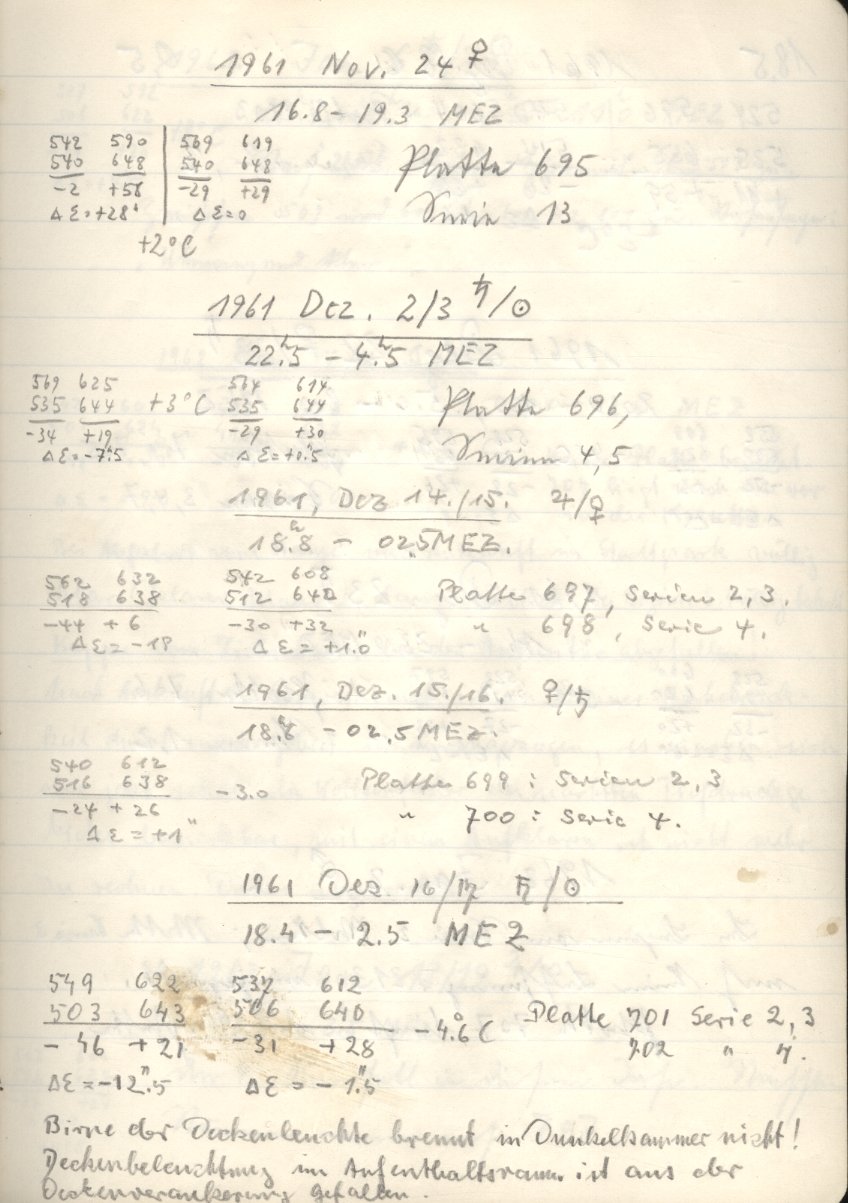 1961 Nov. 24 ♀
16.8 – 19.3 MEZ
542 590 | 569 619
540 648 | 540 648
-2 +58 | -29 +29
Δε=+28" Δε=0
Platte 695
Serie 13
+2°C
1961 Dez. 2/3 ♄/☉
22.5 – 4.5 MEZ
569 625 564 614
535 644 +3°C 535 644
-34 +19 -29 +30
Δε=-7.5" Δε=+0.5"
Platte 696,
Serien 4,5
1961, Dez 14./15. ♃/♀
18.8 – 02.5 MEZ.
562 632 542 608
518 638 512 640
-44 +6 -30 +32
Δε=-18 Δε=+1.0"
Platte 697, Serien 2, 3.
" 698, Serie 4.
1961, Dez. 15./16. ♀/♄
18. – 02.5 MEZ.
540 612
516 638 -3.0
-24 +26
Δε=+1"
Platte 699 : Serien 2, 3
" 700 : Serie 4.
1961 Dez. 16/17 ♄/☉
18.4 – 2.5 MEZ
549 622 537 612
503 643 506 640
-46 +21 -31 +28 -4.6°C
Δε=-12.5" Δε=-1.5"
Platte 701 Serie 2, 3
702 " 4.
Birne der Deckenleuchte brennt in Dunkelkammer nicht!
Deckenbeleuchtung im Aufenthaltsraum ist aus der
Deckenverankerung gefallen.